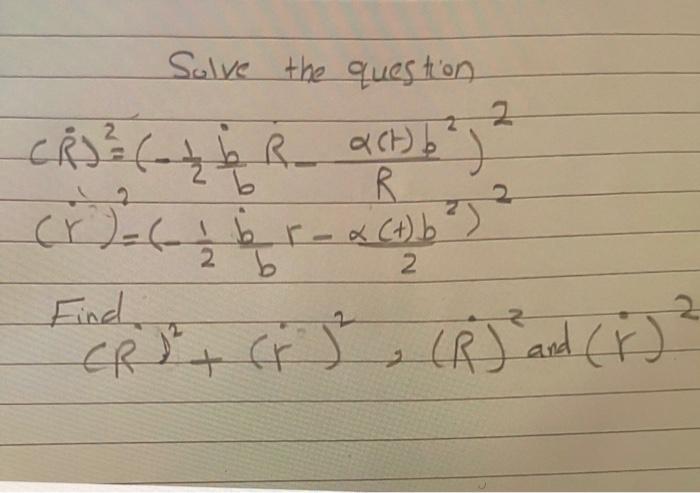 Solve the question
(Ṙ)² = (-1/2 ḃ/b R - α(t)b²/R)²
(ṙ)² = (-1/2 ḃ/b r - α(t)b²/2)²
Find
(Ṙ)² + (ṙ)² , (Ṙ)² and (ṙ)²